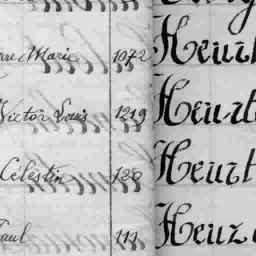 Marie 1072 Heurt
Victor Louis 1219 Heurt
Celestin 120 Heurt
Paul 111 Heuz